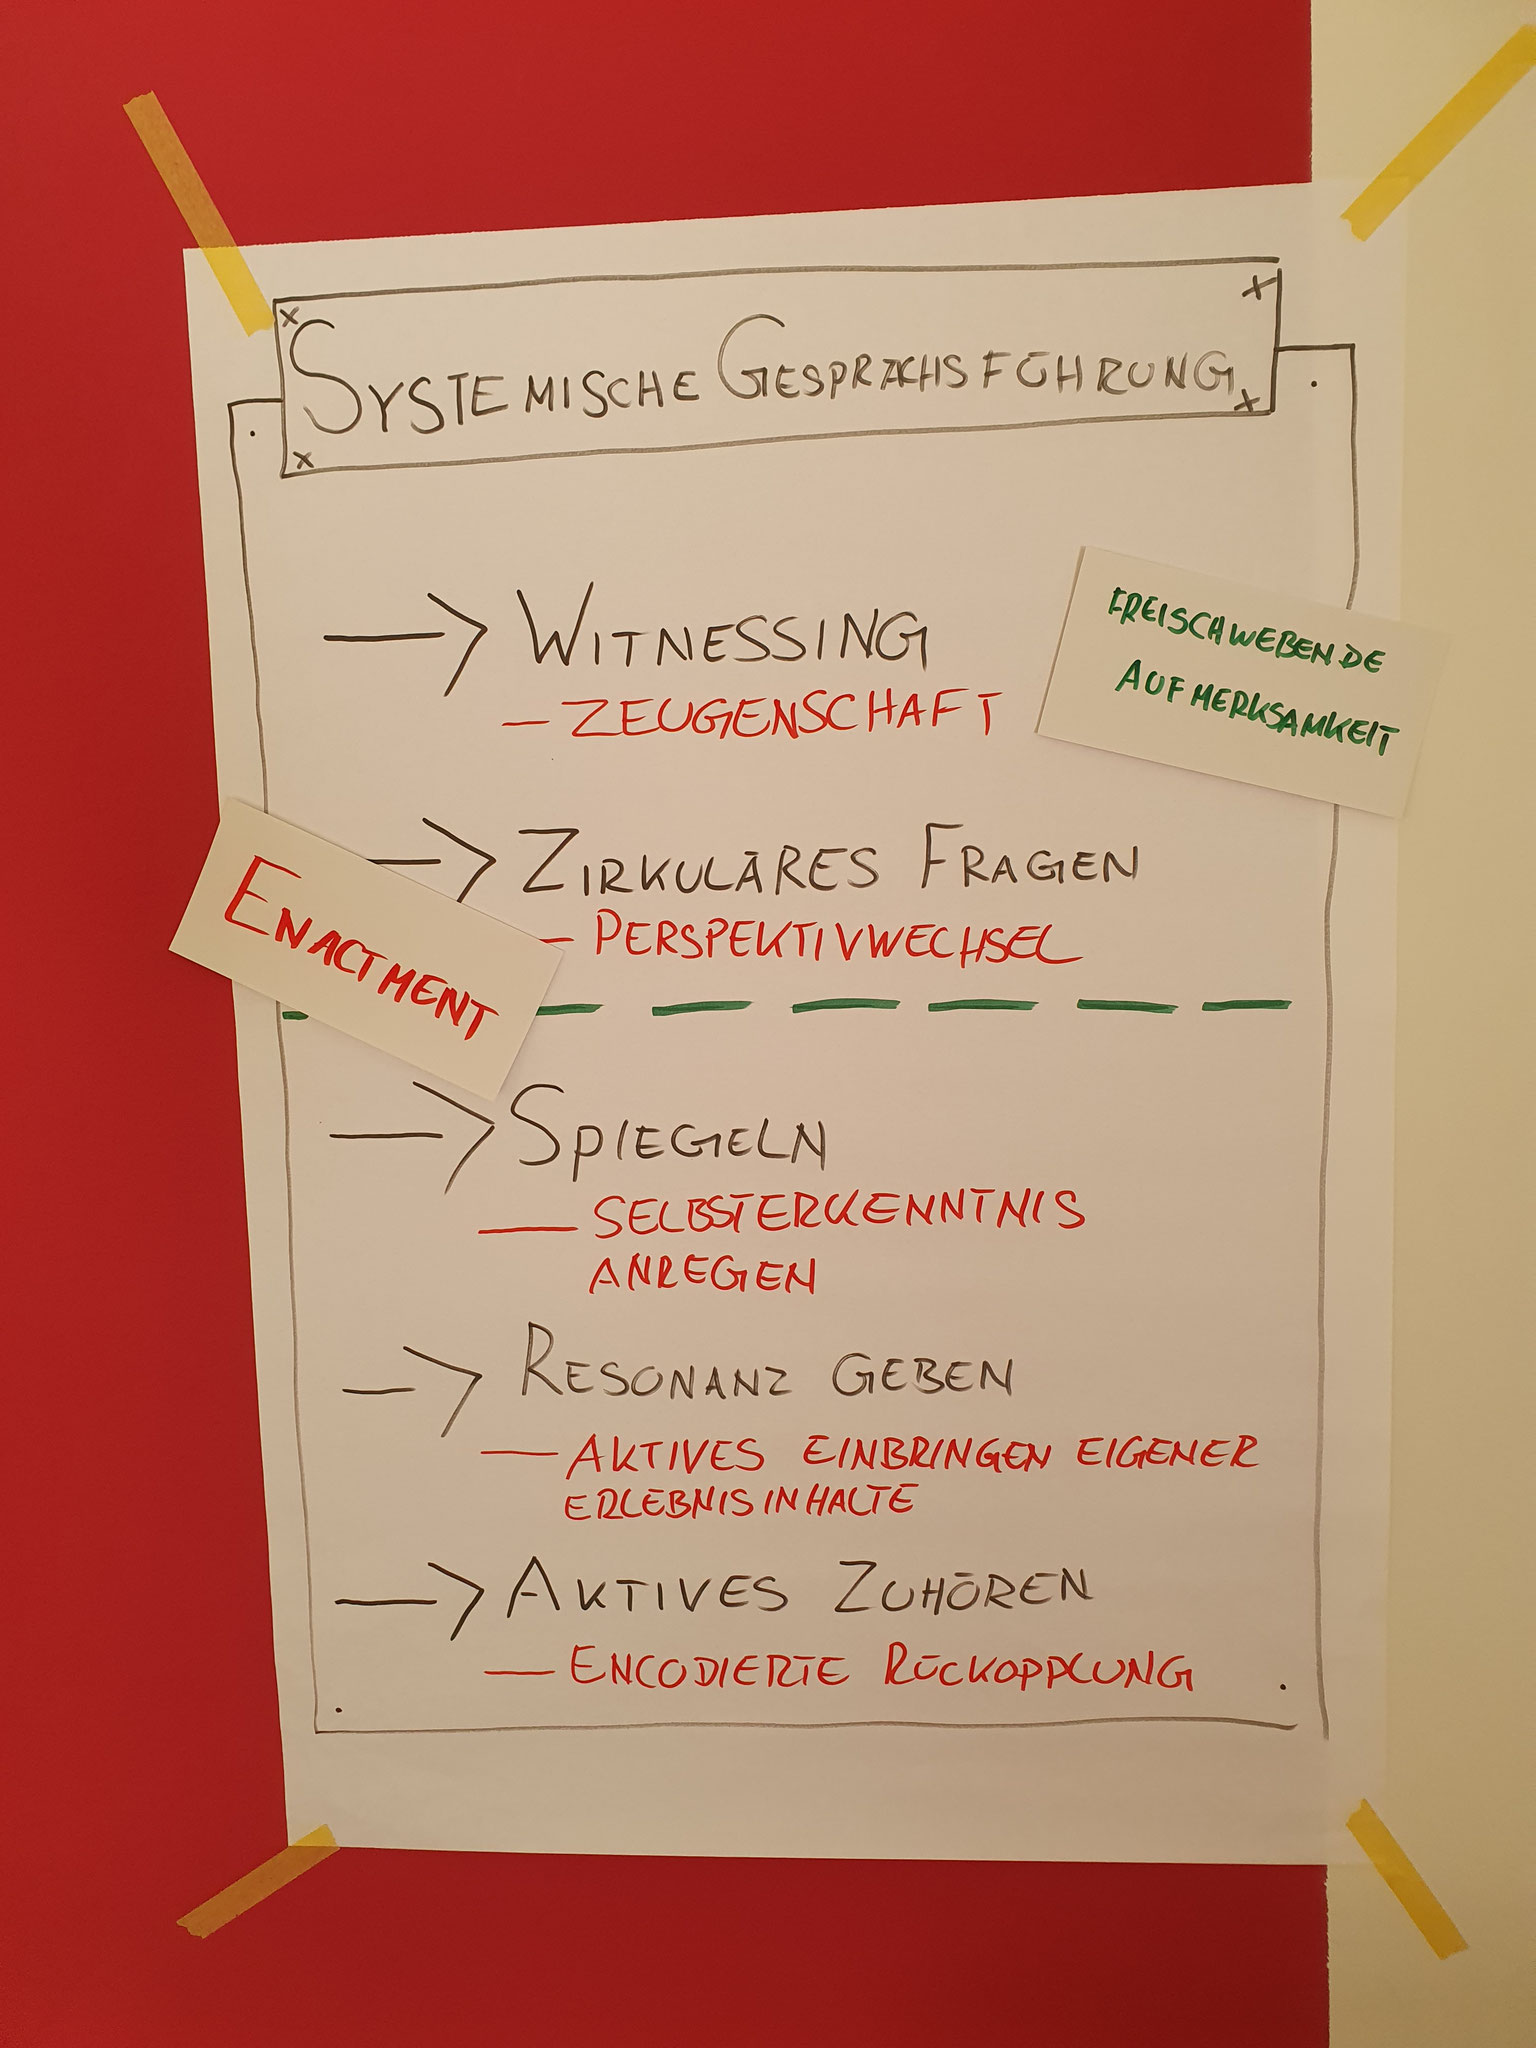 SYSTEMISCHE GESPRÄCHSFÜHRUNG
→ WITNESSING
– ZEUGENSCHAFT
FREISCHWEBENDE
AUFMERKSAMKEIT
→ ZIRKULÄRES FRAGEN
– PERSPEKTIVWECHSEL
ENACTMENT
→ SPIEGELN
– SELBSTERKENNTNIS
ANREGEN
→ RESONANZ GEBEN
– AKTIVES EINBRINGEN EIGENER
ERLEBNISINHALTE
→ AKTIVES ZUHÖREN
– ENCODIERTE RÜCKOPPLUNG